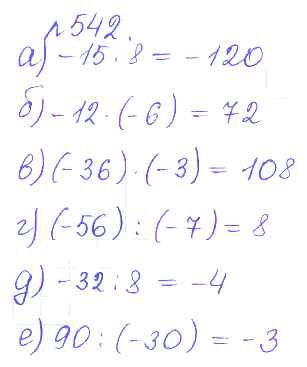 № 542.
а) -15 · 8 = -120
б) -12 · (-6) = 72
в) (-36) · (-3) = 108
г) (-56) : (-7) = 8
д) -32 : 8 = -4
е) 90 : (-30) = -3